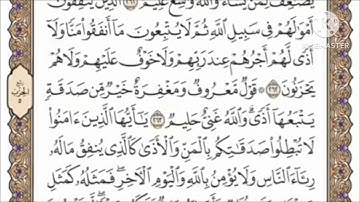 يُضَٰعِفُ لِمَن يَشَآءُ وَٱللَّهُ وَٰسِعٌ عَلِيمٌ ٢٦١ ٱلَّذِينَ يُنفِقُونَ
أَمْوَٰلَهُمْ فِى سَبِيلِ ٱللَّهِ ثُمَّ لَا يُتْبِعُونَ مَآ أَنفَقُوا۟ مَنًّا وَلَآ
أَذًى لَّهُمْ أَجْرُهُمْ عِندَ رَبِّهِمْ وَلَا خَوْفٌ عَلَيْهِمْ وَلَا هُمْ
يَحْزَنُونَ ٢٦٢ قَوْلٌ مَّعْرُوفٌ وَمَغْفِرَةٌ خَيْرٌ مِّن صَدَقَةٍ
يَتْبَعُهَآ أَذًى وَٱللَّهُ غَنِىٌّ حَلِيمٌ ٢٦٣ يَٰٓأَيُّهَا ٱلَّذِينَ ءَامَنُوا۟
لَا تُبْطِلُوا۟ صَدَقَٰتِكُم بِٱلْمَنِّ وَٱلْأَذَىٰ كَٱلَّذِى يُنفِقُ مَالَهُۥ
رِئَآءَ ٱلنَّاسِ وَلَا يُؤْمِنُ بِٱللَّهِ وَٱلْيَوْمِ ٱلْءَاخِرِ فَمَثَلُهُۥ كَمَثَلِ